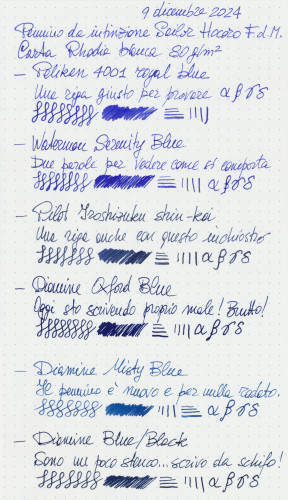 9 dicembre 2024
Pennino da intinzione Sailor Hocoro F.d.M.
Carta Rhodia bianca 80 g/m²
– Pelikan 4001 royal blue
Una riga giusto per provare α β γ δ
– Waterman Serenity Blue
Due parole per vedere come si comporta
α β γ δ
– Pilot Iroshizuku shin-kai
Una riga anche con questo inchiostro
α β γ δ
– Diamine Oxford Blue
Oggi sto scrivendo proprio male! Brutto!
α β γ δ
– Diamine Misty Blue
Il pennino è nuovo e per nulla rodato.
α β γ δ
– Diamine Blue/Black
Sono un poco stanco... scrivo da schifo!
α β γ δ